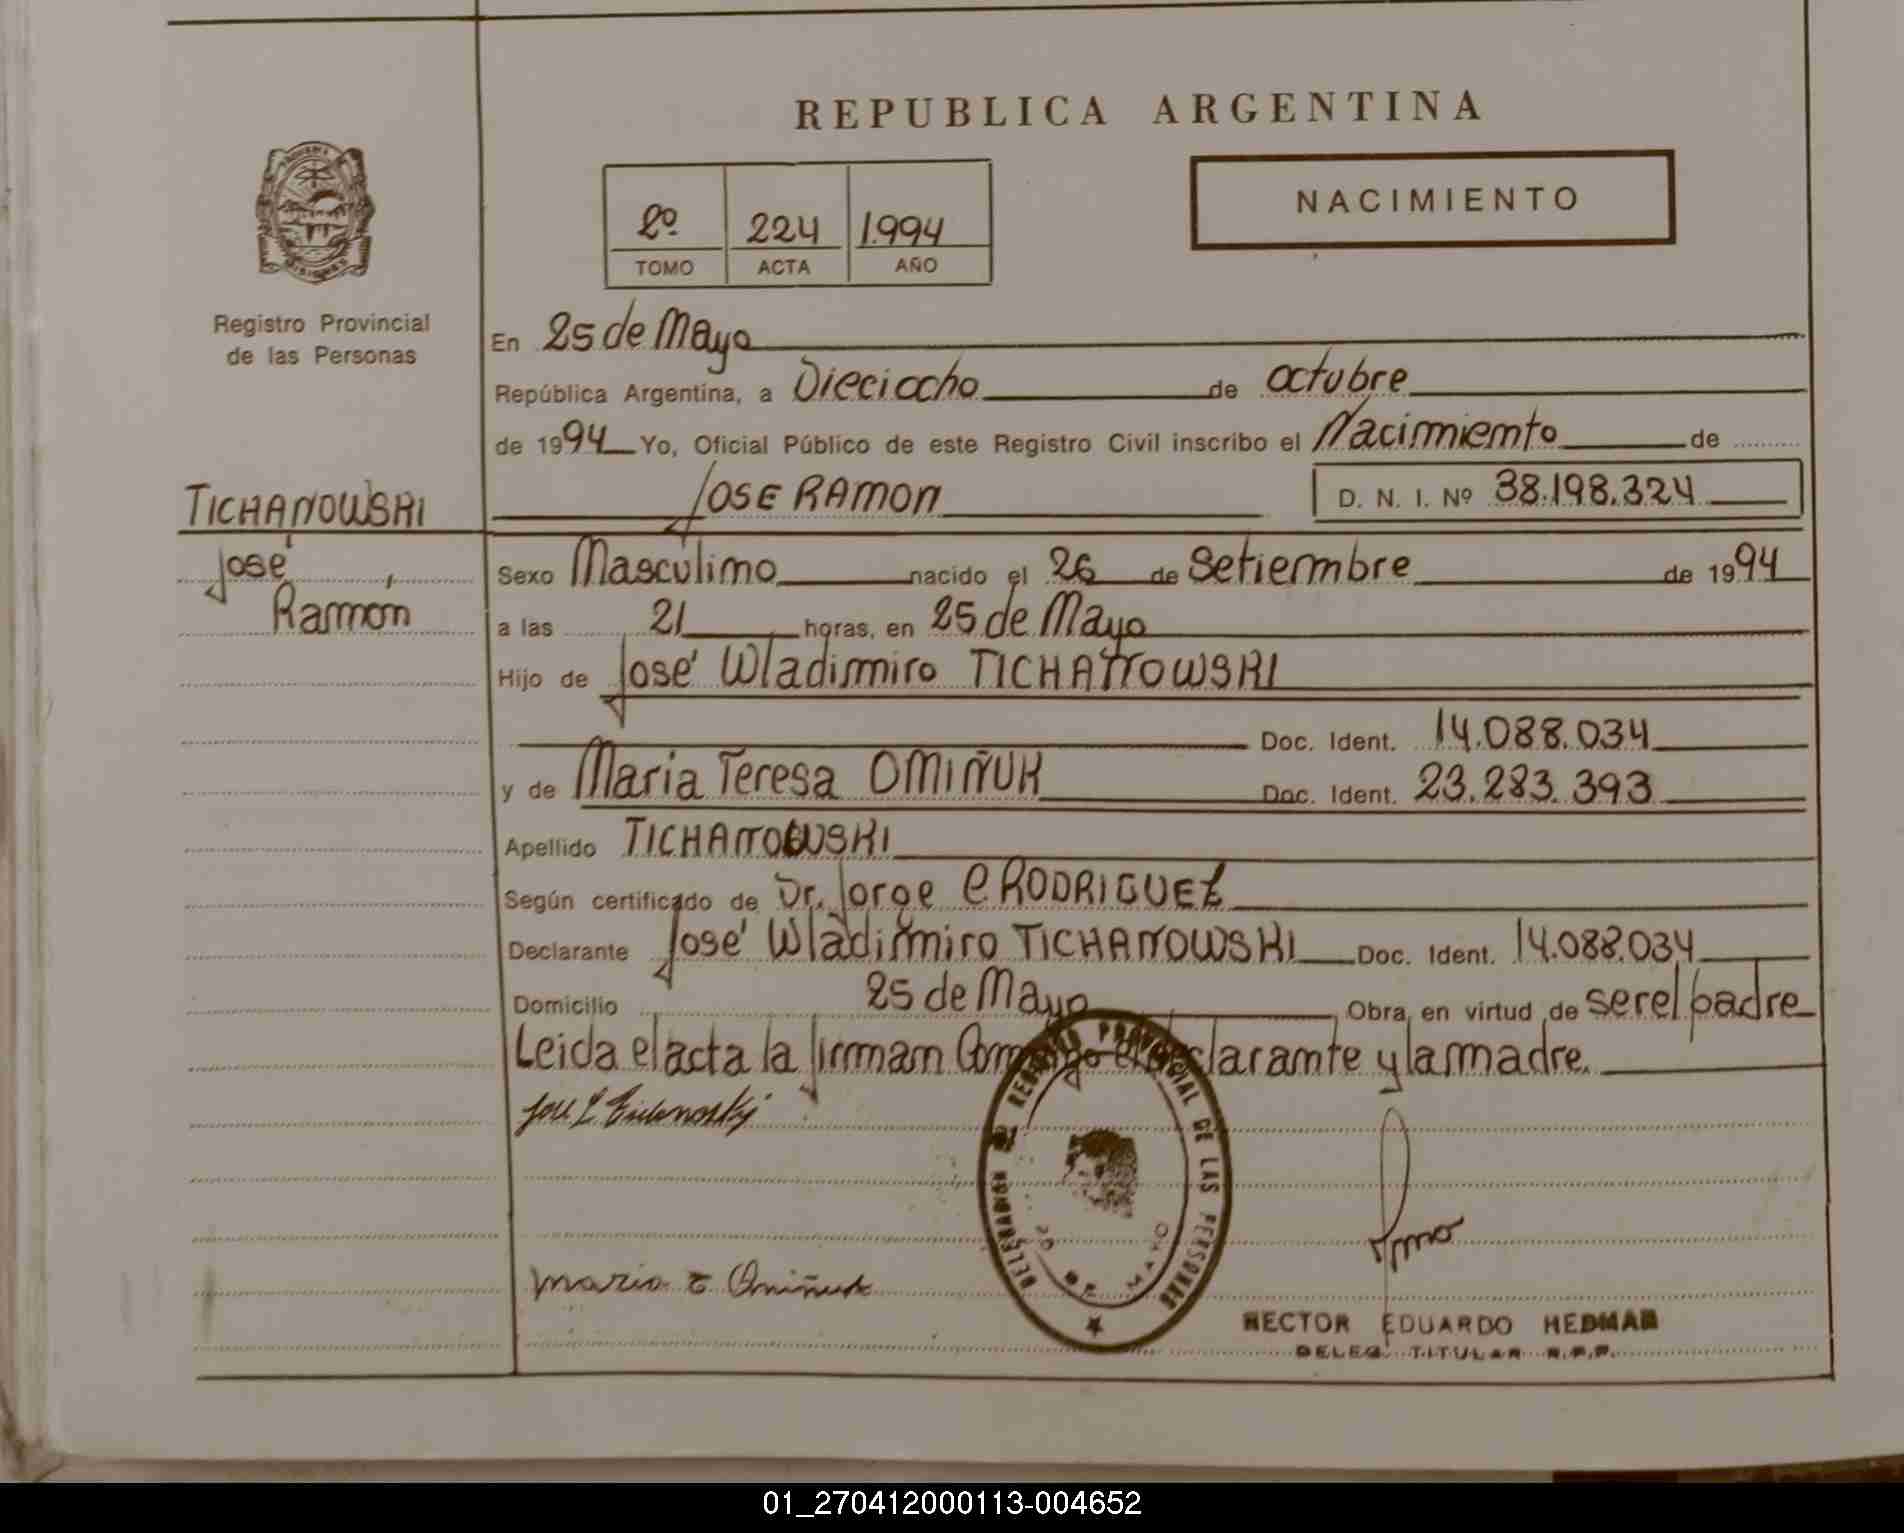 REPUBLICA ARGENTINA
NACIMIENTO
2º 224 1.994
TOMO ACTA AÑO
Registro Provincial
de las Personas
En 25 de Mayo
República Argentina, a Dieciocho de octubre
de 1994 Yo, Oficial Público de este Registro Civil inscribo el Nacimiento de
TICHANOWSKI
José
Ramón
JOSE RAMON D. N. I. Nº 38.198.324
Sexo Masculino nacido el 26 de Setiembre de 1994
a las 21 horas, en 25 de Mayo
Hijo de José Wladimiro TICHANOWSKI
Doc. Ident. 14.088.034
y de Maria Teresa OMIÑUK Doc. Ident. 23.283.393
Apellido TICHANOWSKI
Según certificado de Dr. Jorge C RODRIGUEZ
Declarante José Wladimiro TICHANOWSKI Doc. Ident. 14.088.034
Domicilio 25 de Mayo Obra en virtud de ser el padre
Leida el acta la firman Conmigo el declarante y la madre.
Maria T Omiñuk
DELEGACION REGISTRO PROVINCIAL DE LAS PERSONAS
25 DE MAYO
HECTOR EDUARDO HEDMAN
DELEG. TITULAR R.P.P.
01_270412000113-004652